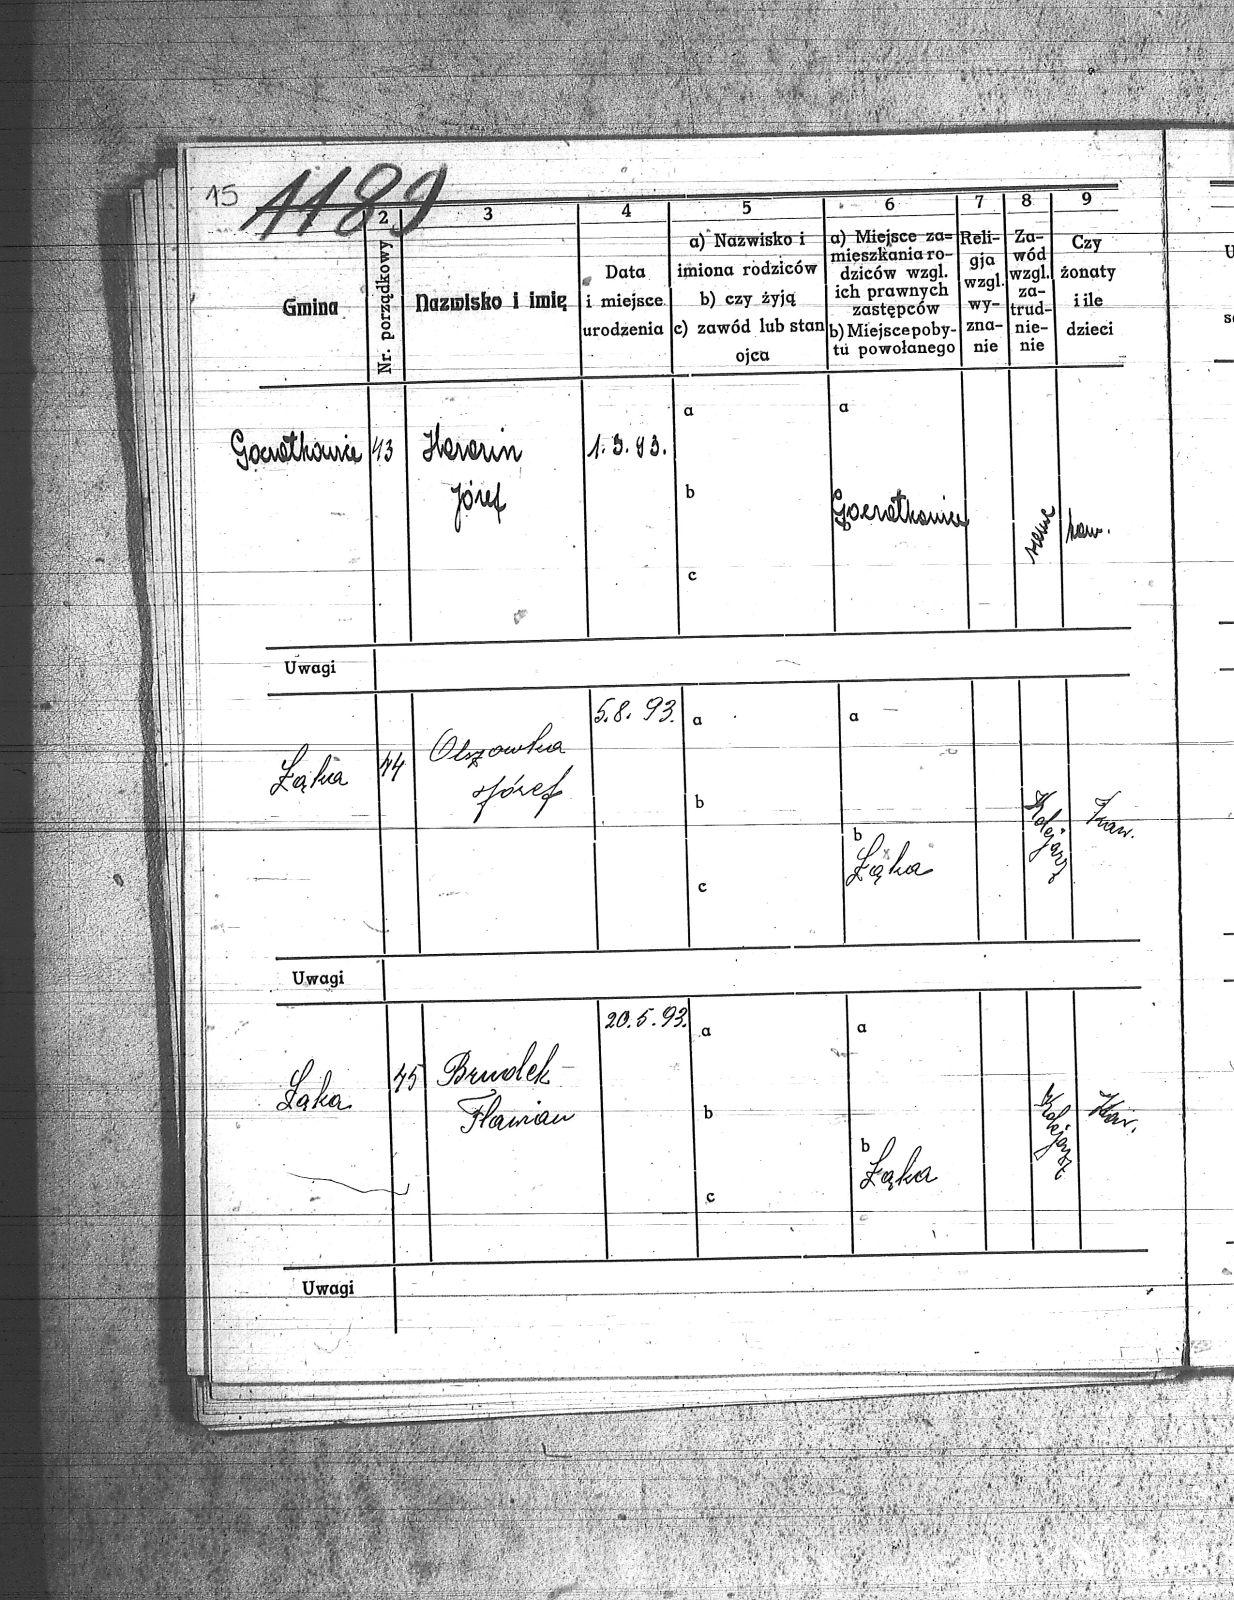 15
1189
2
3
4
5
6
7
8
9
Gmina
Nr. porządkowy
Nazwisko i imię
Data
i miejsce
urodzenia
a) Nazwisko i
imiona rodziców
b) czy żyją
c) zawód lub stan
ojca
a) Miejsce za=
mieszkania ro-
dziców wzgl.
ich prawnych
zastępców
b) Miejsce poby-
tu powołanego
Reli-
gja
wzgl.
wy-
zna-
nie
Za-
wód
wzgl.
za-
trud-
nie-
nie
Czy
żonaty
i ile
dzieci
Goczałkowice
43
Józef
1.3.93.
a
b
c
a
b
Goczałkowice
kaw.
Uwagi
Łąka
44
Olszowka
Józef
5.8.93.
a
b
c
a
b
Łąka
Kolejarz
Kaw.
Uwagi
Łąka
45
Brudek
Flawian
20.5.93.
a
b
c
a
b
Łąka
Kolejarz
Kaw.
Uwagi